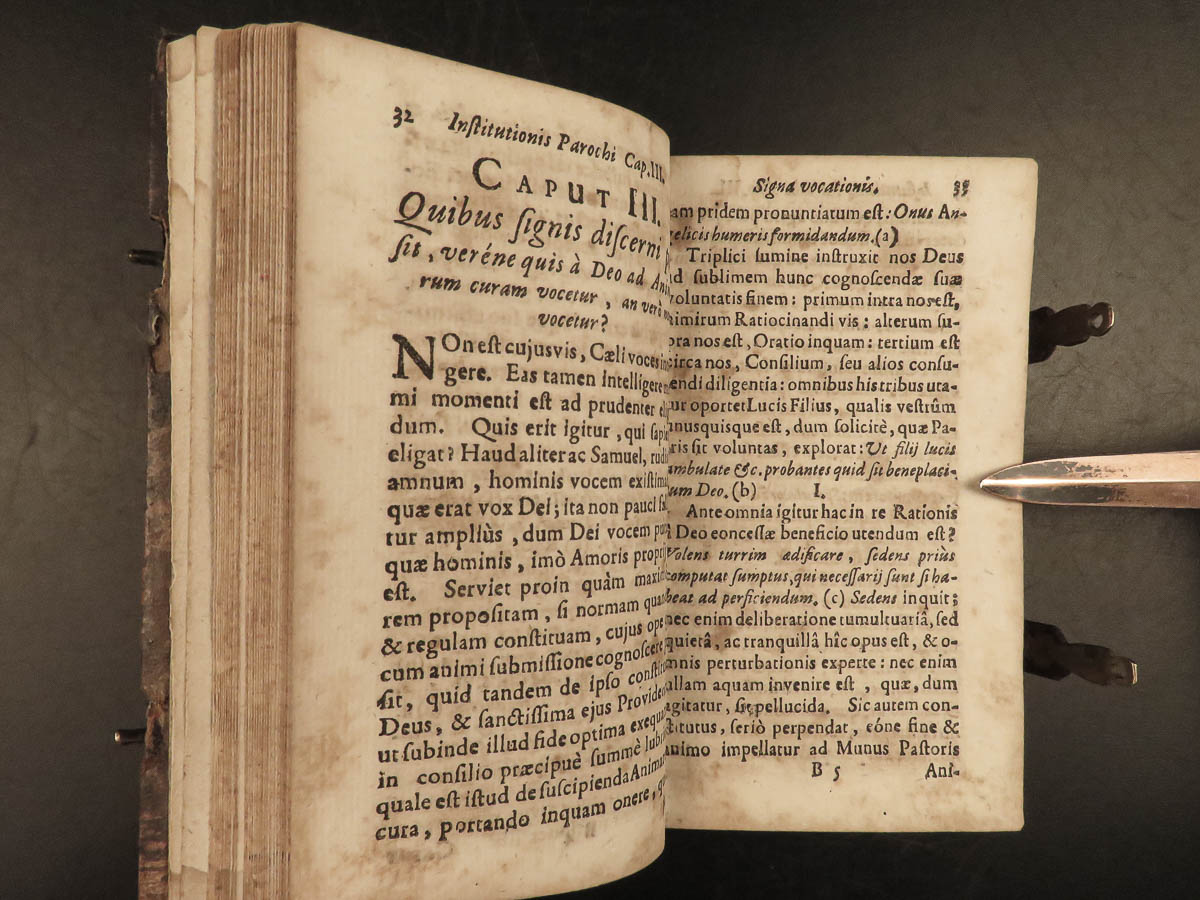 32 Inſtitutionis Parochi Cap.III.
CAPUT III.
Quibus ſignis diſcerni
ſit, veréne quis à Deo ad
rum curam vocetur, an verò
vocetur?
NOn eſt cujusvis, Cæli voces
gere. Eas tamen intelligere
mi momenti eſt ad prudenter
dum. Quis erit igitur, qui
eligat? Haud aliter ac Samuel,
amnum, hominis vocem
quæ erat vox Dei; ita non pauci
tur ampliùs, dum Dei vocem
quæ hominis, imò Amoris
eſt. Serviet proin quàm
rem propoſitam, ſi normam
& regulam conſtituam, cujus
cum animi ſubmiſſione
ſit, quid tandem de ipſo
Deus, & ſanctiſſima ejus
ut ſubinde illud fide optima
in conſilio præcipuè ſummè
quale eſt iſtud de ſuſcipienda
cura, portando inquam onere,
Signa vocationis. 33
pridem pronuntiatum eſt: Onus An-
humeris formidandum.(a)
Triplici lumine inſtruxit nos Deus
ſublimem hunc cognoſcendæ ſuæ
voluntatis finem: primum intra nos eſt,
nimirum Ratiocinandi vis: alterum ſu-
nos eſt, Oratio inquam: tertium eſt
circa nos, Conſilium, ſeu alios conſu-
diligentia: omnibus his tribus uta-
oportet Lucis Filius, qualis veſtrûm
unusquisque eſt, dum ſolicitè, quæ Pa-
ſit voluntas, explorat: Ut filij lucis
ambulate &c. probantes quid ſit beneplaci-
Deo.(b) I.
Ante omnia igitur hac in re Rationis
Deo eonceſſæ beneficio utendum eſt?
Volens turrim ædificare, ſedens priùs
computat ſumptus, qui neceſſarij ſunt ſi ha-
beat ad perficiendum. (c) Sedens inquit;
nec enim deliberatione tumultuariâ, ſed
quietâ, ac tranquillâ hîc opus eſt, & o-
mnis perturbationis experte: nec enim
ullam aquam invenire eſt, quæ, dum
agitatur, ſit pellucida. Sic autem con-
ſtitutus, ſeriò perpendat, eóne fine &
animo impellatur ad Munus Paſtoris
B 5 Ani-